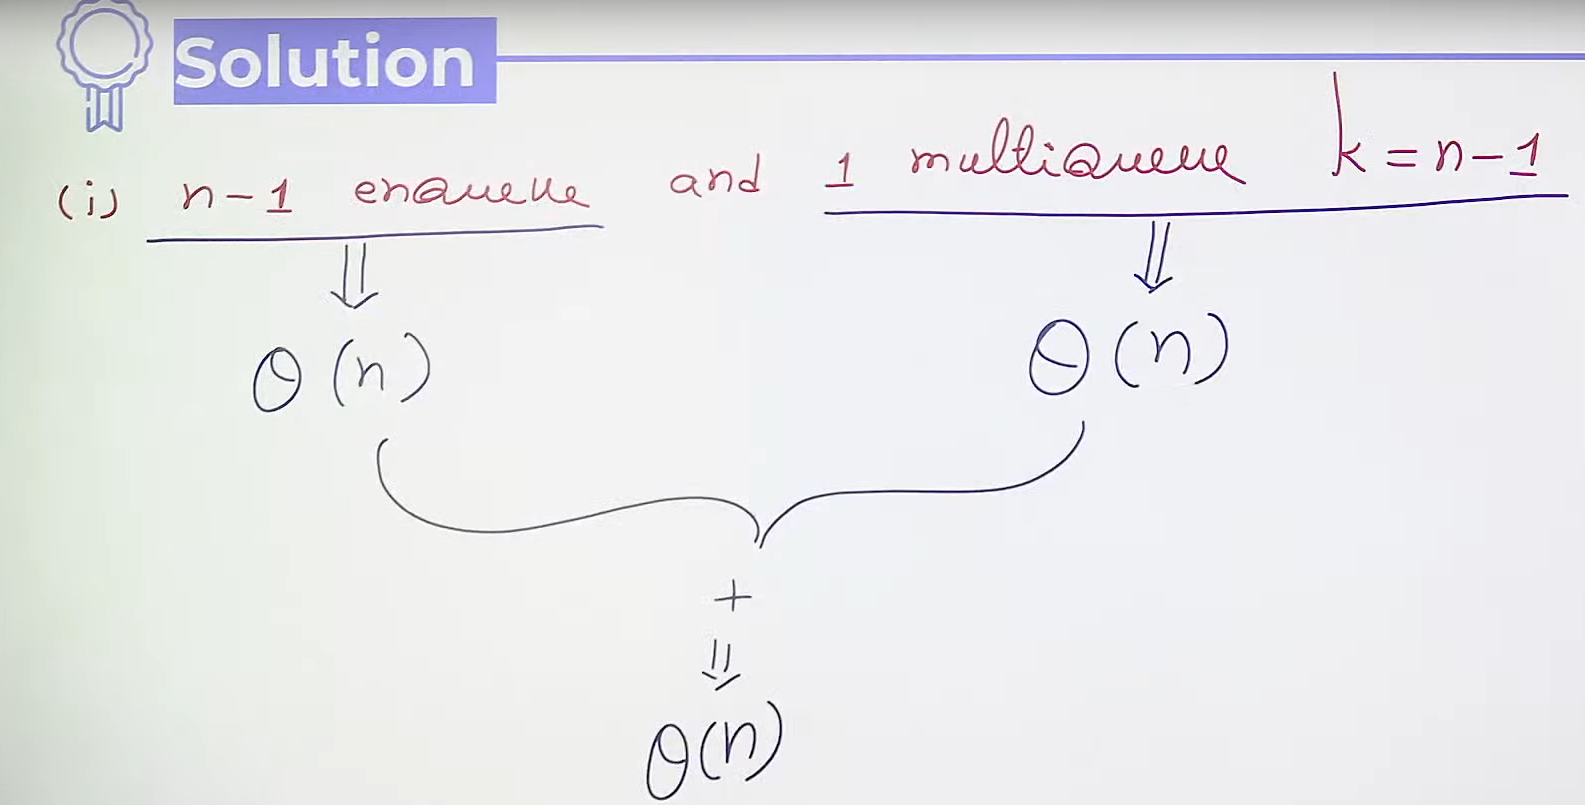 Solution
(i) n-1 enqueue and 1 multiQueue k=n-1
θ(n) θ(n)
+
θ(n)